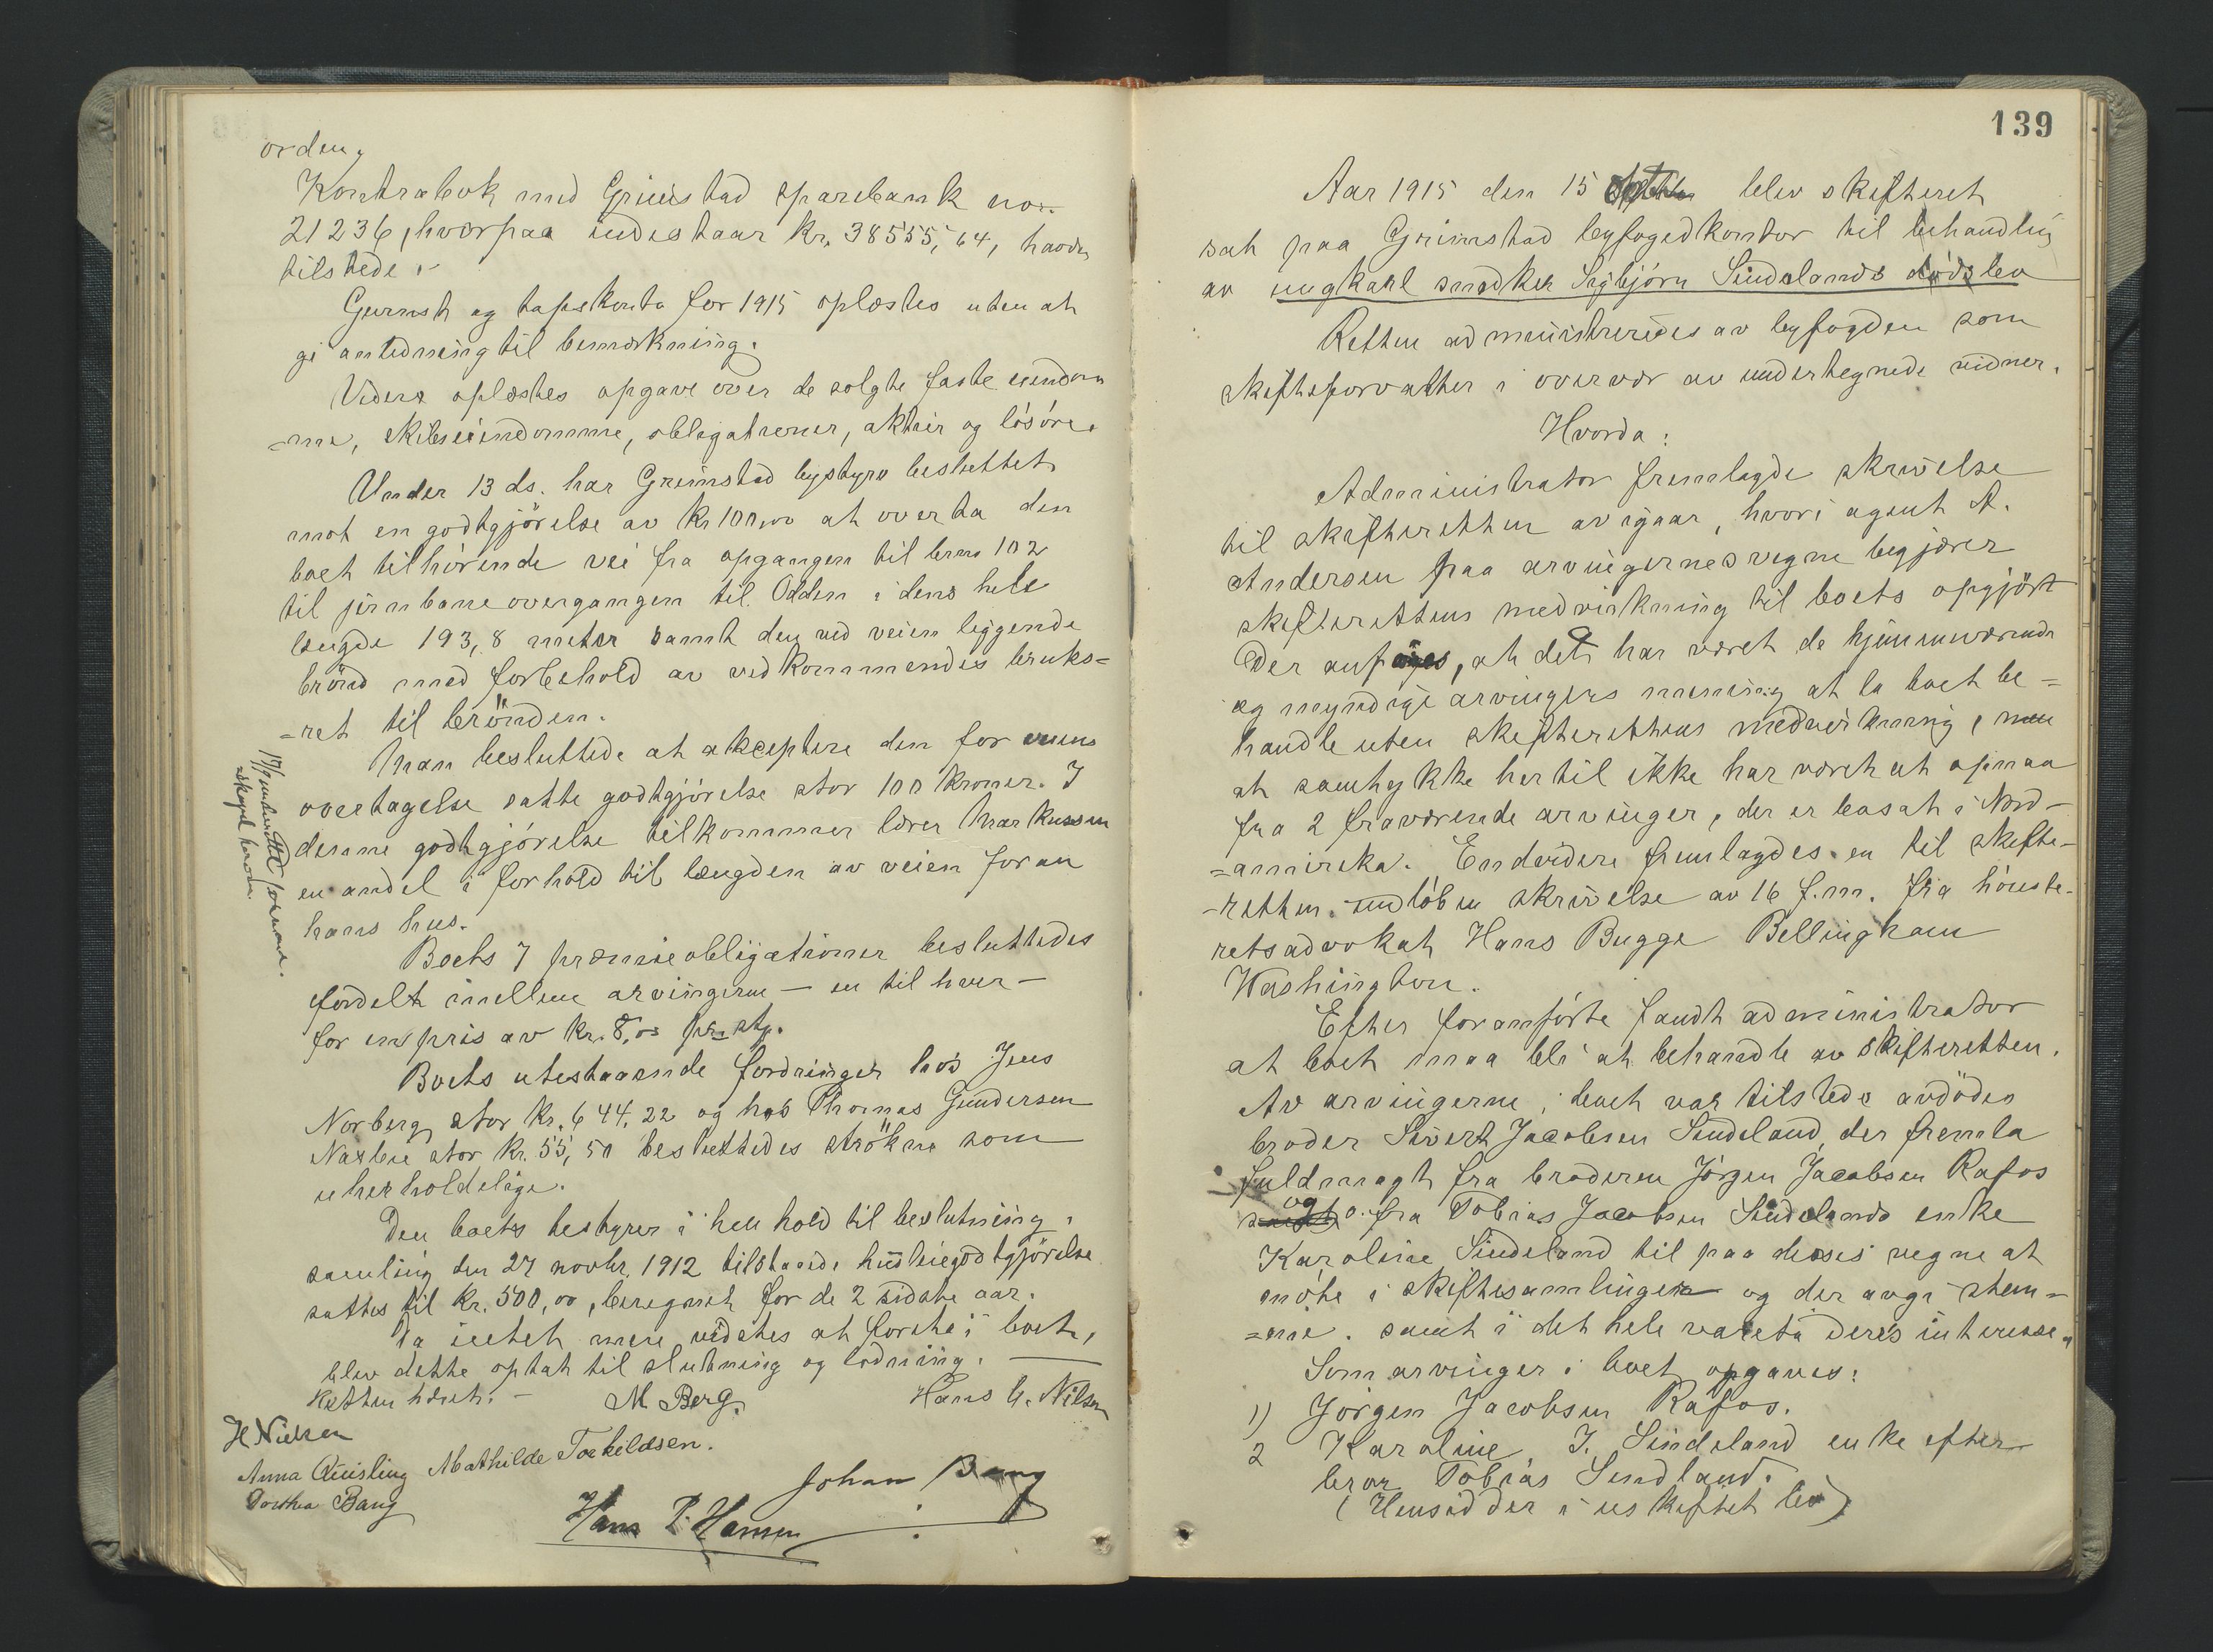 orden,
Kontrabok med Grimstad sparebank no.
21236, hvorpaa indestaar kr. 38555,64, havdes
tilstede.
Gevinst og tapskonto for 1915 oplæstes uten at
gi anledning til bemerkning.
Videre oplæstes opgave over de solgte faste eiendom
-me, skibseiendomme, obligationer, aktier og løsøre.
Under 13 ds. har Grimstad bystyre besluttet
mot en godtgjørelse av kr 100,00 at overta den
boet tilhørende vei fra opgangen til brno 102
til jernbaneovergangen til Odden i dens hele
længde 193,8 meter samt den ved veien liggende
brønd med forbehold av vedkommendes bruks=
=ret til brønden.
Man besluttede at akceptere den for veiens
overtagelse satte godtgjørelse stor 100 kroner. I
denne godtgjørelse tilkommer lærer Markussen
en andel i forhold til længden av veien foran
hans hus.
Boets 7 præmieobligationer besluttedes
fordelt imellem arvingerne — en til hver —
for en pris av kr. 8,00 pr. stk.
Boets utestaaende fordringer hos Jens
Norberg stor kr. 644.22 og hos Thomas Gundersen
stor kr. 55,50 besluttedes strøkne som
uerholdelige.
Den boets bestyrer i henhold til beslutning i
samling den 27 novbr. 1912 tilstaaede husleiegodtgjørelse
sattes til kr. 500,00, beregnet for de 2 sidste aar.
Da intet mere vidstes at foreta i boet,
blev dette optat til slutning og lodning.
Retten hævet. —
M Berg.
Hans G. Nilsen
H Nielsen
Anna Quisling Mathilde Torkildsen.
Dorthea Bang
Johan Bang
Hans P. Hansen
139
Aar 1915 den 15 blev skifteret
sat paa Grimstad byfogedkontor til behandling
av ungkarl snedker Sigbjørn Sindelands dødsbo
Retten administreredes av byfogden som
skifteforvalter i overvær av undertegnede vidner.
Hvorda:
Administrator fremlagde skrivelse
til skifteretten av igaar, hvori agent A.
Andersen paa arvingernes vegne begjærer
skifterettens medvirkning til boets opgjør
Der anføres, at det har været de hjemmeværende
og myndige arvingers mening at la boet be=
handle uten skifterettens medvirkning, men
at samtykke hertil ikke har været at opnaa
fra 2 fraværende arvinger, der er bosat i Nord-
=amerika. Endvidere fremlagdes en til skifte-
-retten indløben skrivelse av 16 f.m. fra høieste-
retsadvokat Hans Bugge Bellingham
Washington.
Efter foranførte fandt administrator
at boet maa bli at behandle av skifteretten.
Av arvingerne i boet var tilstede avdødes
broder Sivert Jacobsen Sindeland, der fremla
fuldmagt fra broderen Jørgen Jacobsen Rafos
og fra Tobias Jacobsen Sindelands enke
Karoline Sindeland til paa disses vegne at
møte i skiftesamlinger og der avgi stem=
=me. samt i det hele vareta deres interesser
Som arvinger i boet opgaves:
1) Jørgen Jacobsen Rafos.
2 Karoline J. Sindeland enke efter
bror Tobias Sindland.
(Hensidder i uskiftet bo)